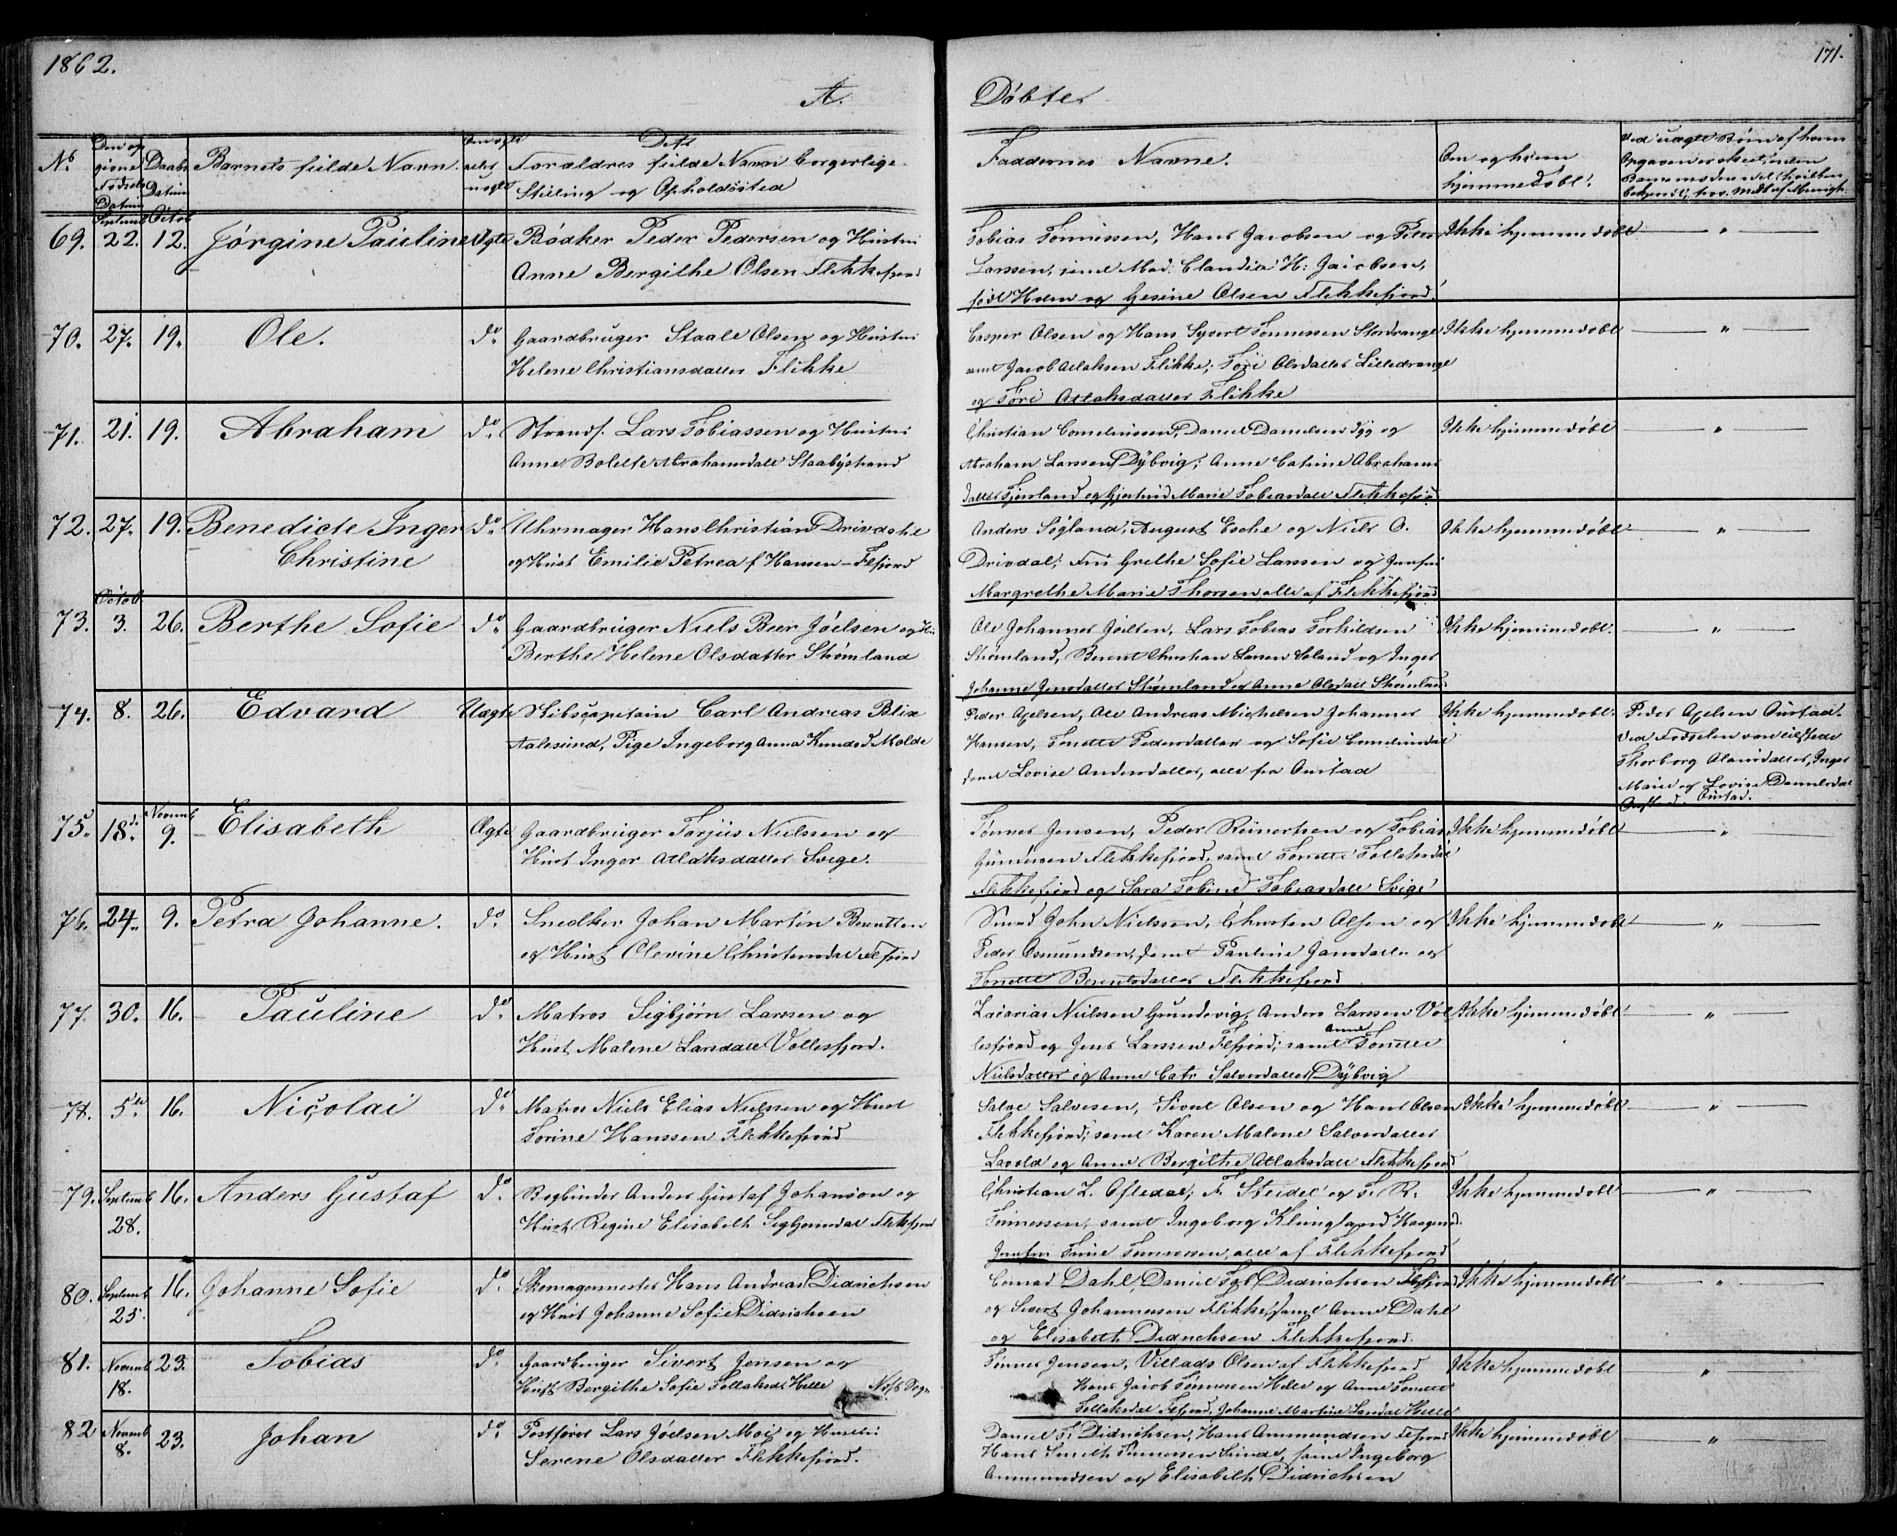 1862.
A.
Døbte
171.
No
Daabs Datum
Barnets fulde Navn.
Forældres fulde Navn borgerlige
Stilling og Opholdssted
Faddernes Navne.
Om og hvem
hjemmedøbt.
Septemb Octob
69. 22. 12. Jørgine Pauline Ægte Bødker Peder Pedersen og Hustru
Anne Bergithe Olsen Flekkefjord
Tobias Tønnessen, Hans Jacobsen og Peder
Larssen, samt Mad. Claudia H. Jacobsen,
født Holm og Gesine Olsen Flekkefjord.
Ikke hjemmedøbt
70. 27. 19. Ole. do. Gaardbruger Staale Olsen og Hustru
Helene Christiansdatter Flikke
Casper Olsen og Hans Syvert Tønnessen Stordrange
samt Jacob Atlaksen Flikke, Tøri Olsdatter Lilledrange
og Tøri Atlaksdatter Flikke
Ikke hjemmedøbt
71. 21. 19. Abraham do. Strands. Lars Tobiassen og Hustru
Anne Bolette Abrahamsdatt
Christian Corneliussen, Daniel Danielsen og
Abraham Larssen Dybvig; Anne Catrine Abrahams
datter og Marie Tobiasdatt Flekkefjo
Ikke hjemmedøbt
72. 27. 19. Benedicte Inger do. Uhrmager Hans Christian Drivdahl
Christine og Hust Emilie Petrea f Hansen – Flfjord
Anders Søyland, August Esche og Niels O.
Drivdal; Fru Grethe Sofie Larssen og Jomfru
Margrethe Marie Thorsen, alle af Flekkefjord
Ikke hjemmedøbt
Octob
73. 3. 26. Berthe Sofie do. Gaardbruger Niels Beer Joelsen og Hu
Berthe Helene Olsdatter Strømland
Ole Johannes Joelsen, Lars Tobias Torkildsen
Strømland, Berent Christian Larsen og Inger
Johanne Jensdatter Strømland og Anne Olsdatt Strømland
Ikke hjemmedøbt.
74. 8. 26. Edvard Uægte Skibscapitain Carl Andreas Blix
Aalesund, Pige Ingeborg Anna Knudsd Molde
Peder Axelsen, Ole Andreas Michelsen Johannes
Hansen, Tonette Pedersdatter og Sofie Corneliusdat
samt Lovise Andersdatter, alle fra Austad
Ikke hjemmedøbt.
Peder Axelsen Austad.
Ved Fødselen var tilstede
Thorborg Olausdatter, Inger
Marie og Lovise Danielsdat
Austad.
Novemb
75. 18. 9. Elisabeth Ægte Gaardbruger Torjuis Nielssen og
Hust Inger Atlaksdatter Svige.
Tønnes Jensen, Peder Reinertsen og Tobias
Flekkefjord, samt Tonette Tollaksdat
Flekkefjord og Sara Tobine Tobiasdatt Svige
Ikke hjemmedøbt
76. 24. 9. Petra Johanne. do. Snedker Johan Martin Berntsen
og Hust Olevine Christensdat Flfjord
Smed John Nielssen, Christen Olsen og
Peder Osmundsen, samt Pauline Jansdatter og
Tonette Berentsdatter Flekkefjord
Ikke hjemmedøbt
77 30. 16. Pauline do. Matros Sigbjørn Larssen og
Hust. Malene Larsdatt Vollesfjord.
Zacarias Nielssen Grundevig, Anders Larssen Vol
lesfjord og Jens Larssen Flfjord; samt Anne Tonette
Nielsdatter og Anne Catr Salvesdatter Dybvig
Ikke hjemmedøbt
78. 5te 16. Nicolai do. Matros Niels Elias Nielssen og Hust
Torine Hanssen Flekkefjord
Salve Salvesen, Sivert Olsen og Hans Olsen
Flekkefjord; samt Karen Malene Salvesdatter
Lavold og Anne Bergithe Atlaksdatt Flekkefjord
Ikke hjemmedøbt
79. Septemb 28. 16. Anders Gustaf do. Bogbinder Anders Gustaf Johanson og
Hust. Regine Elisabeth Sigbjørnsdat Flekkefjord
Christian L. Oftedal; F. Steidel og T. R.
Tønnessen, samt Ingeborg Klungland
Jomfru Tønnessen, alle af Flekkefjord
Ikke hjemmedøbt
80. Septemb 25. 16. Johanne Sofie do. Skomagermester Hans Andreas Didrichsen
og Hust Johanne Sofie Didrichsen
Conrad Dahl, Daniel Tob. Didrichsen Flfjord
og Sivert Johannessen Flikke, samt Anne Dahl
og Elisabeth Didrichsen Flekkefjord.
Ikke hjemmedøbt
81. Novemb 18. 23. Tobias do. Gaardbruger Sivert Jensen og
Hust. Bergithe Sofie Tollaksd. Helle Næss Sogn
Tønnes Jensen, Villads Olsen af Flekkefjord
Hans Jacob Tønnessen Helle og Anne Tonette
Tollaksdat Flfjord, Johanne Martine Larsdat Helle
Ikke hjemmedøbt
82 Novemb 8. 23. Johan do. Postfører Lars Joelsen Moi og Hustru
Serene Olsdatter Flekkefjord.
Daniel T. Didrichsen, Hans Ammundsen Flfjord
Hans Smith Tønnessen, samt Ingeborg
Ammundsen og Elisabeth Didrichsen
Ikke hjemmedøbt